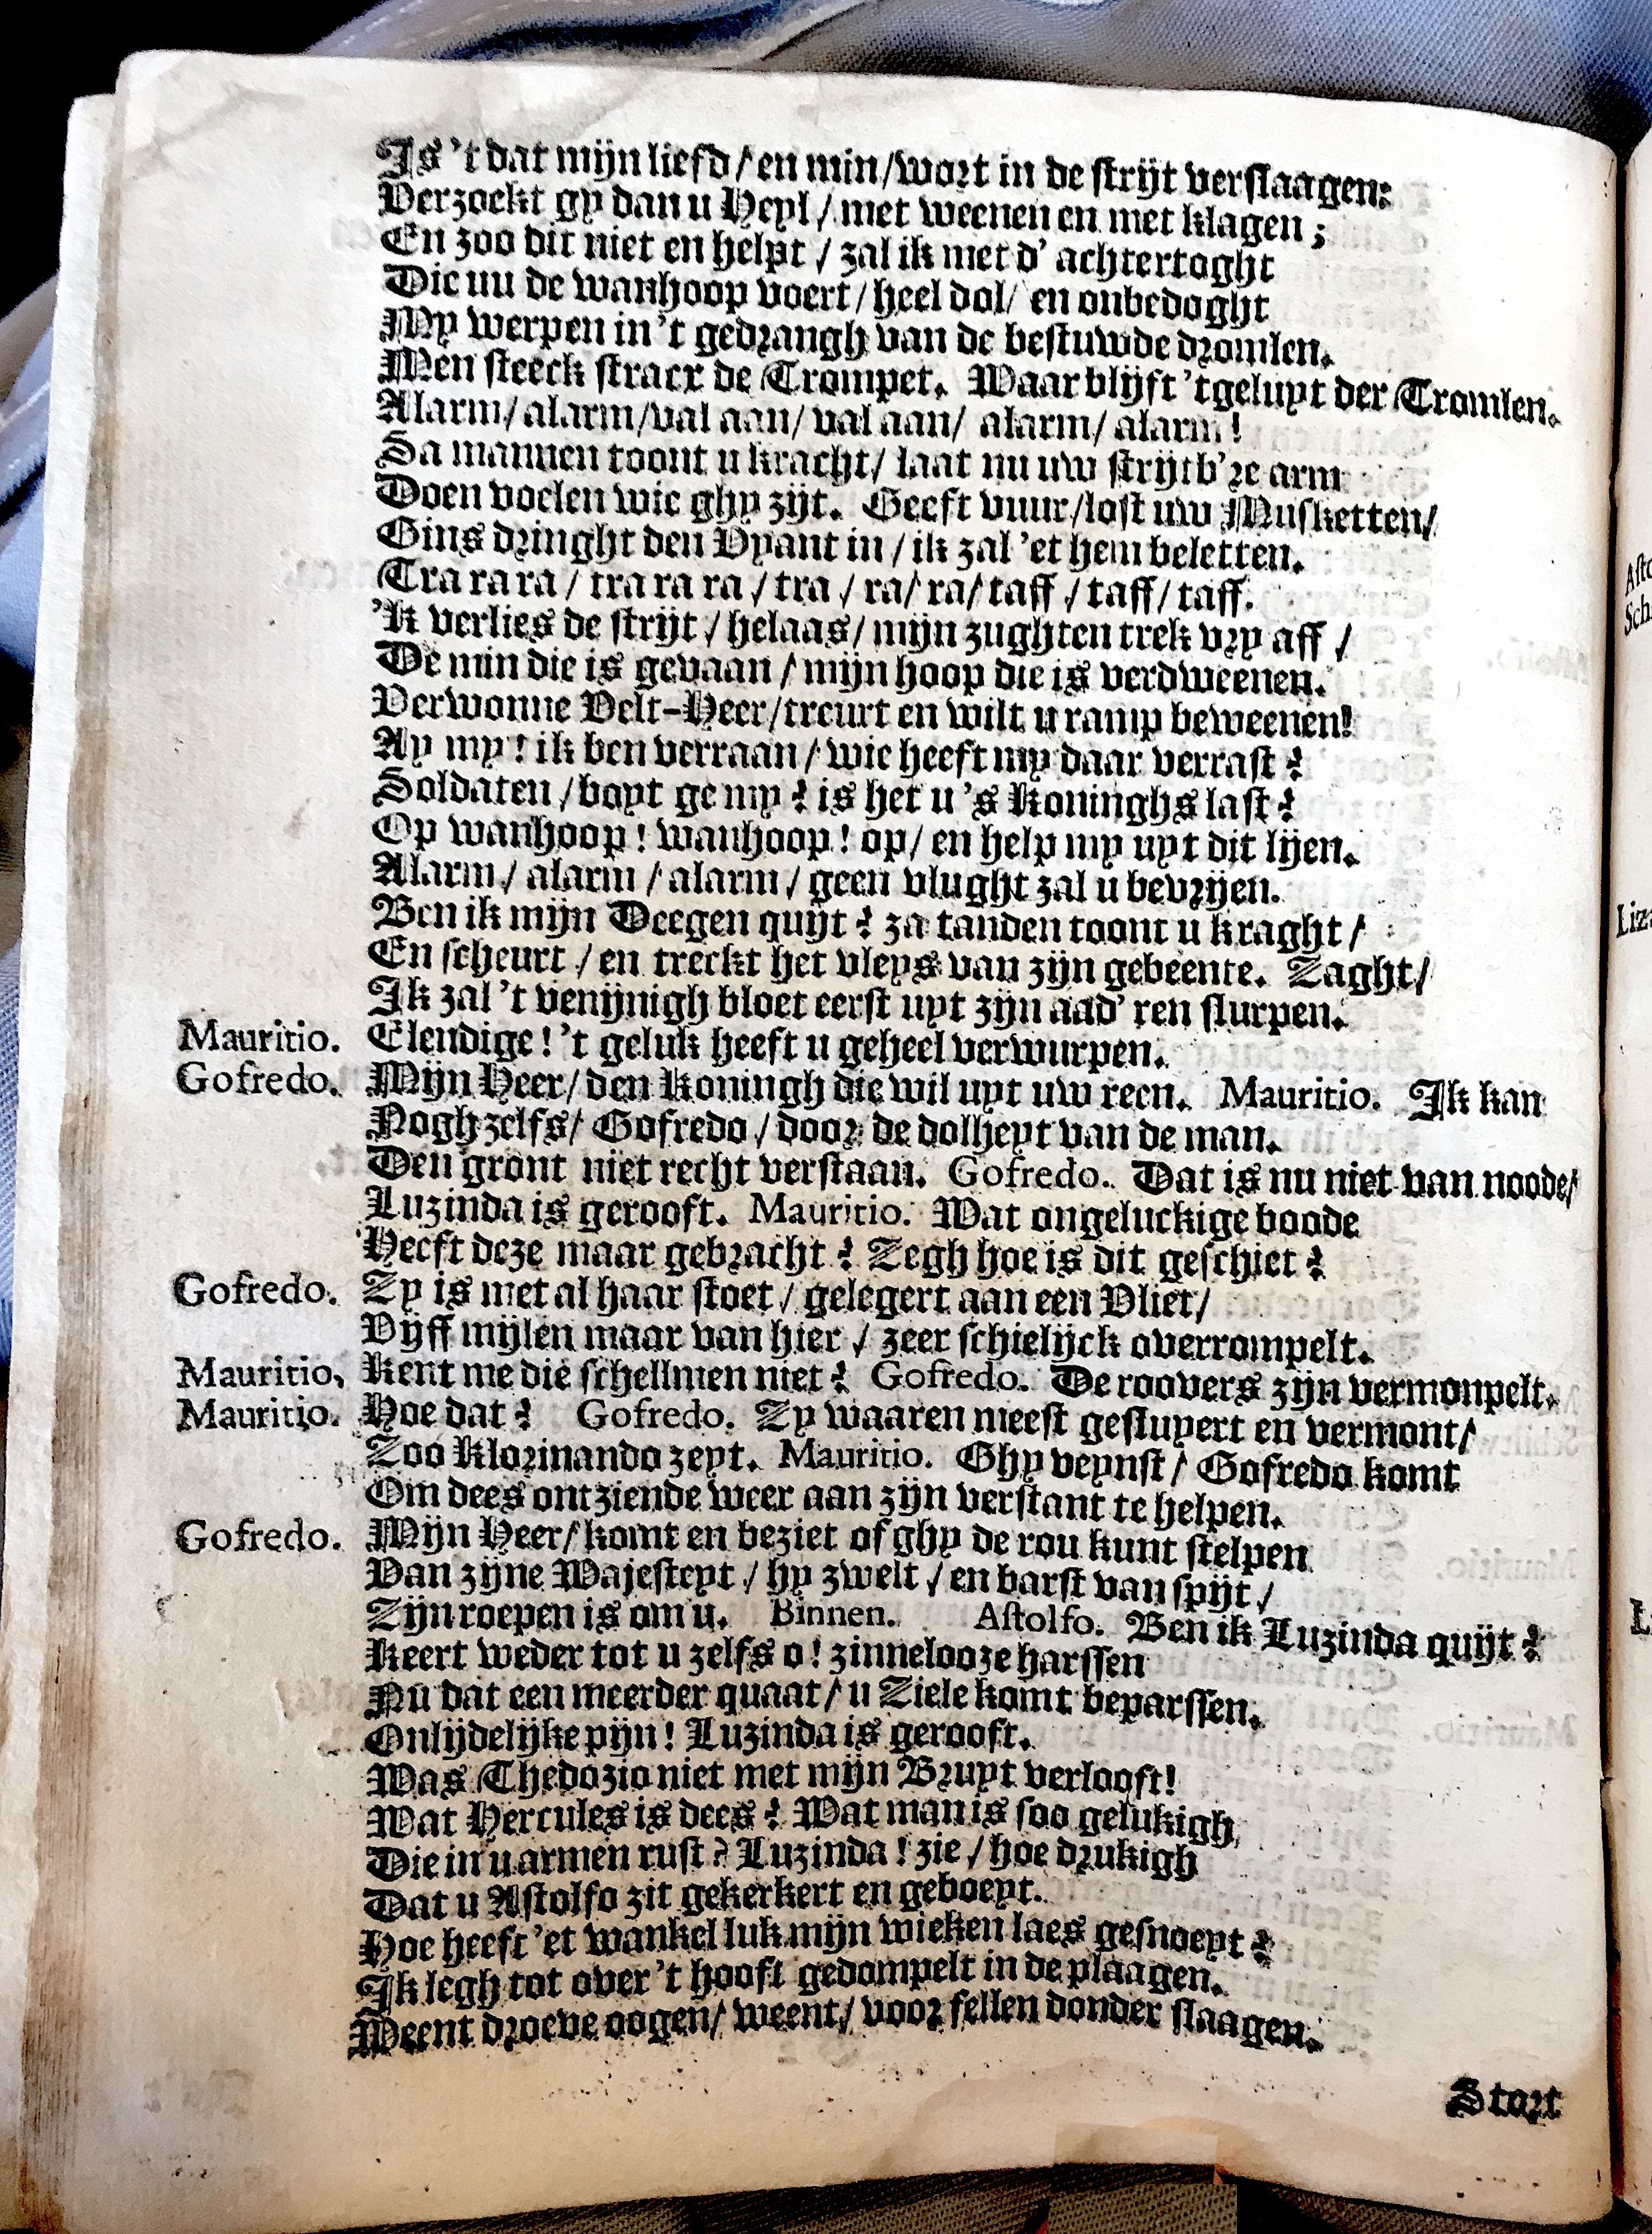 Is 't dat mijn liefd / en min / wort in de strijt verslaagen:
Verzoekt gy dan u Heyl / met weenen en met klagen ;
En zoo dit niet en helpt / zal ik met d' achtertoght
Die nu de wanhoop voert / heel dol / en onbedoght
My werpen in 't gedrangh van de bestuwde dromlen.
Men steeck stracx de Trompet. Waar blijft 't geluyt der Tromlen.
Alarm / alarm / val aan / val aan / alarm / alarm !
Sa mannen toont u kracht / laat nu uw strijtb're arm
Doen voelen wie ghy zijt. Geeft vuur / lost uw Musketten /
Gins dringht den Vyant in / ik zal 'et hem beletten.
Tra ra ra / tra ra ra / tra / ra / ra / taff / taff / taff.
'k verlies de strijt / helaas / mijn zughten trek vry aff /
De min die is gevaan / mijn hoop die is verdweenen.
Verwonne Velt-Heer / treurt en wilt u ramp beweenen!
Ay my ! ik ben verraan / wie heeft my daar verrast ?
Soldaten / boyt ge my ? is het u 's Koninghs last ?
Op wanhoop ! wanhoop ! op / en help my uyt dit lijen.
Alarm / alarm / alarm / geen vlught zal u bevrijen.
Ben ik mijn Deegen quijt ? za tanden toont u kraght /
En scheurt / en treckt het vleys van zijn gebeente. Zaght /
Ik zal 't venijnigh bloet eerst uyt zijn aad'ren slurpen.
Mauritio. Elendige ! 't geluk heeft u geheel verwurpen.
Gofredo. Mijn Heer / den Koningh die wil uyt uw reen. Mauritio. Ik kan
Nogh zelfs / Gofredo / door de dolheyt van de man.
Den gront niet recht verstaan. Gofredo. Dat is nu niet van noode /
Luzinda is gerooft. Mauritio. Wat ongeluckige boode
Heeft deze maar gebracht ? Zegh hoe is dit geschiet ?
Gofredo. Zy is met al haar stoet / gelegert aan een Vliet /
Vijff mijlen maar van hier / zeer schielijck overrompelt.
Mauritio, Kent me die schellmen niet ? Gofredo. De roovers zijn vermompelt.
Mauritio. Hoe dat ? Gofredo. Zy waaren meest gesluyert en vermomt /
Zoo Klorinando zeyt. Mauritio. Ghy veynst / Gofredo komt
Om dees ontziende weer aan zijn verstant te helpen.
Gofredo. Mijn Heer / komt en beziet of ghy de rou kunt stelpen
Van zijne Majesteyt / hy zwelt / en barst van spijt /
Zijn roepen is om u. Binnen. Astolfo. Ben ik Luzinda quijt ?
Keert weder tot u zelfs o ! zinnelooze harssen
Nu dat een meerder quaat / u Ziele komt beparssen.
Onlijdelijke pijn ! Luzinda is gerooft.
Was Thedozio niet met mijn Bruyt verlooft!
Wat Hercules is dees ? Wat man is soo gelukigh
Die in u armen rust ? Luzinda ! zie / hoe drukigh
Dat u Astolfo zit gekerkert en geboeyt.
Hoe heeft 'et wankel luk mijn wieken laes gesnoeyt ?
Ik legh tot over 't hooft gedompelt in de plaagen.
Weent droeve oogen / weent / voor fellen donder slaagen.
Stort